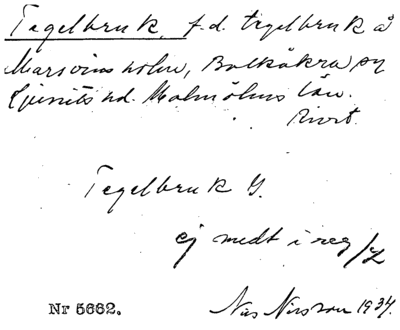 Tegelbruk, f.d. tegelbruk å
Marsvinsholm, Balkåkra sn
Ljunits hd. Malmöhus län.
Rivet.
Tegelbruk
ej medt i reg
Nr 5662.
Nils Nilsson 1934.